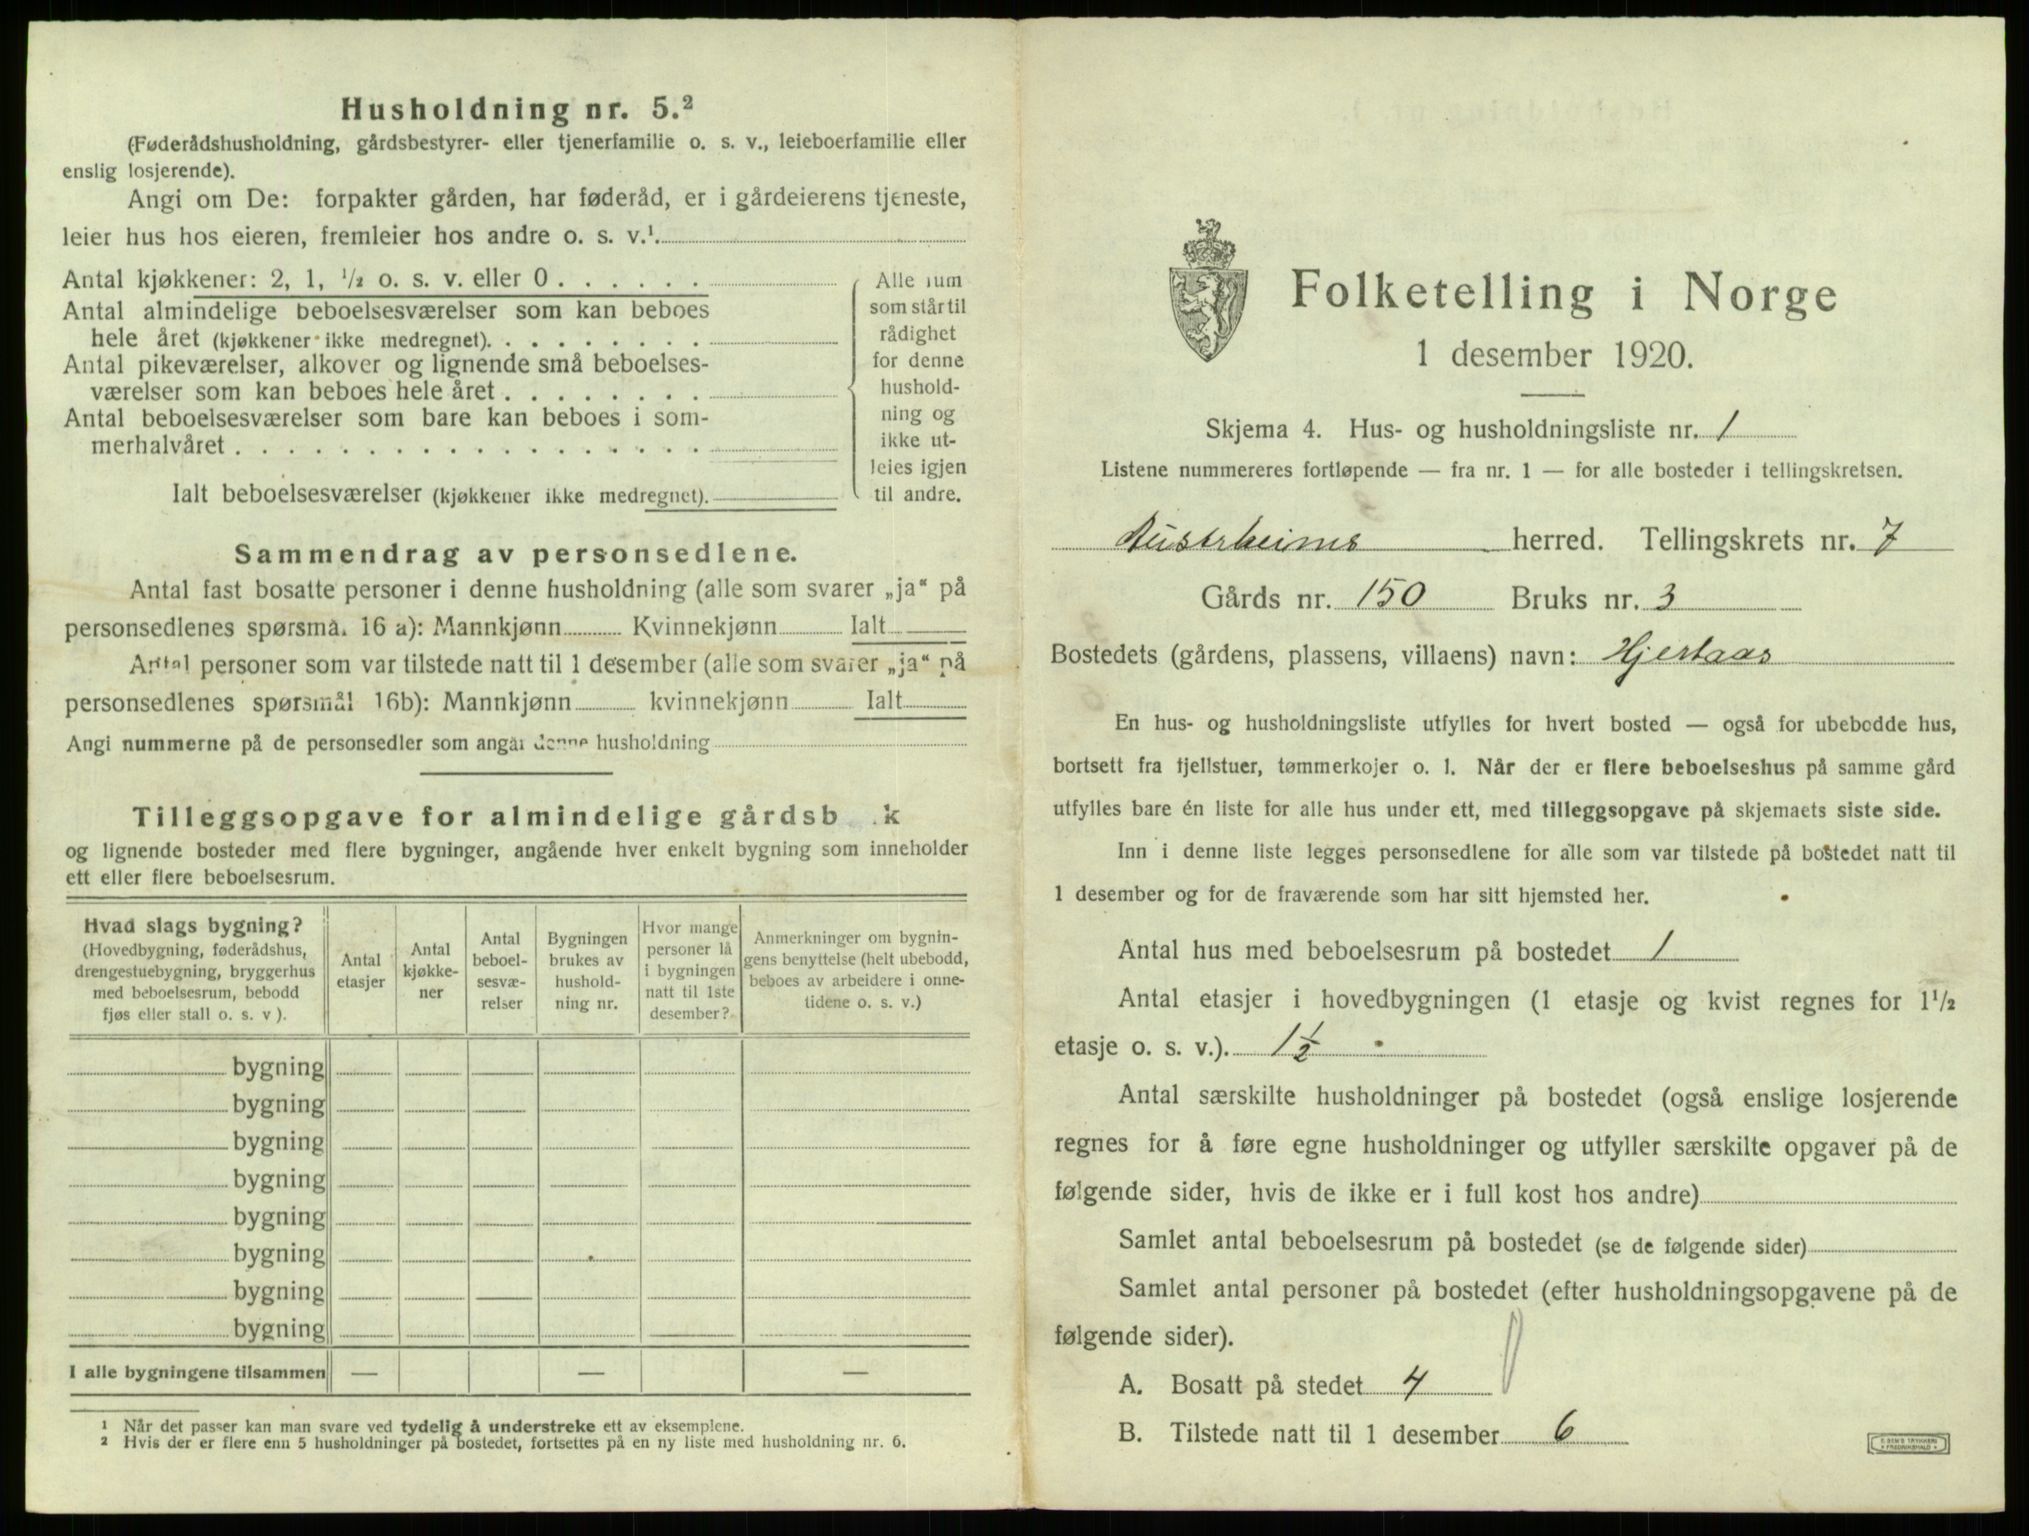 Husholdning nr. 5.²
(Føderådshusholdning, gårdsbestyrer- eller tjenerfamilie o. s. v., leieboerfamilie eller
enslig losjerende).
Angi om De: forpakter gården, har føderåd, er i gårdeierens tjeneste,
leier hus hos eieren, fremleier hos andre o. s. v.¹
Antal kjøkkener: 2, 1, ½ o. s. v. eller 0
Antal almindelige beboelsesværelser som kan beboes
hele året (kjøkkener ikke medregnet).
Antal pikeværelser, alkover og lignende små beboelses-
værelser som kan beboes hele året
Antal beboelsesværelser som bare kan beboes i som-
merhalvåret
Ialt beboelsesværelser (kjøkkener ikke medregnet).
Alle rum
som står til
rådighet
for denne
hushold-
ning og
ikke ut-
leies igjen
til andre.
Sammendrag av personsedlene.
Antal fast bosatte personer i denne husholdning (alle som svarer „ja“ på
personsedlenes spørsmål 16 a): Mannkjønn Kvinnekjønn Ialt
Antal personer som var tilstede natt til 1 desember (alle som svarer „ja“ på
personsedlenes spørsmål 16b): Mannkjønn kvinnekjønn Ialt
Angi nummerne på de personsedler som angår denne husholdning
Tilleggsopgave for almindelige gårdsb k
og lignende bosteder med flere bygninger, angående hver enkelt bygning som inneholder
ett eller flere beboelsesrum.
Hvad slags bygning?
(Hovedbygning, føderådshus,
drengestuebygning, bryggerhus
med beboelsesrum, bebodd
fjøs eller stall o. s. v ).
Antal
etasjer
Antal
kjøkke-
ner
Antal
beboel-
sesvæ-
relser
Bygningen
brukes av
hushold-
ning nr.
Hvor mange
personer lå
i bygningen
natt til 1ste
desember?
Anmerkninger om bygnin-
gens benyttelse (helt ubebodd,
beboes av arbeidere i onne-
tidene o. s. v.)
bygning
bygning
bygning
bygning
bygning
bygning
bygning
bygning
I alle bygningene tilsammen — — —
¹ Når det passer kan man svare ved tydelig å understreke ett av eksemplene.
² Hvis der er flere enn 5 husholdninger på bostedet, fortsettes på en ny liste med husholdning nr. 6.
Folketelling i Norge
1 desember 1920.
Skjema 4. Hus- og husholdningsliste nr. 1
Listene nummereres fortløpende — fra nr. 1 — for alle bosteder i tellingskretsen.
Austrheims herred. Tellingskrets nr. 7
Gårds nr. 150 Bruks nr. 3
Bostedets (gårdens, plassens, villaens) navn: Hjertaas
En hus- og husholdningsliste utfylles for hvert bosted — også for ubebodde hus,
bortsett fra fjellstuer, tømmerkojer o. l. Når der er flere beboelseshus på samme gård
utfylles bare én liste for alle hus under ett, med tilleggsopgave på skjemaets siste side.
Inn i denne liste legges personsedlene for alle som var tilstede på bostedet natt til
1 desember og for de fraværende som har sitt hjemsted her.
Antal hus med beboelsesrum på bostedet 1
Antal etasjer i hovedbygningen (1 etasje og kvist regnes for 1½
etasje o. s. v.). 1½
Antal særskilte husholdninger på bostedet (også enslige losjerende
regnes for å føre egne husholdninger og utfyller særskilte opgaver på de
følgende sider, hvis de ikke er i full kost hos andre)
Samlet antal beboelsesrum på bostedet (se de følgende sider)
Samlet antal personer på bostedet (efter husholdningsopgavene på de
følgende sider).
A. Bosatt på stedet 4
B. Tilstede natt til 1 desember 6